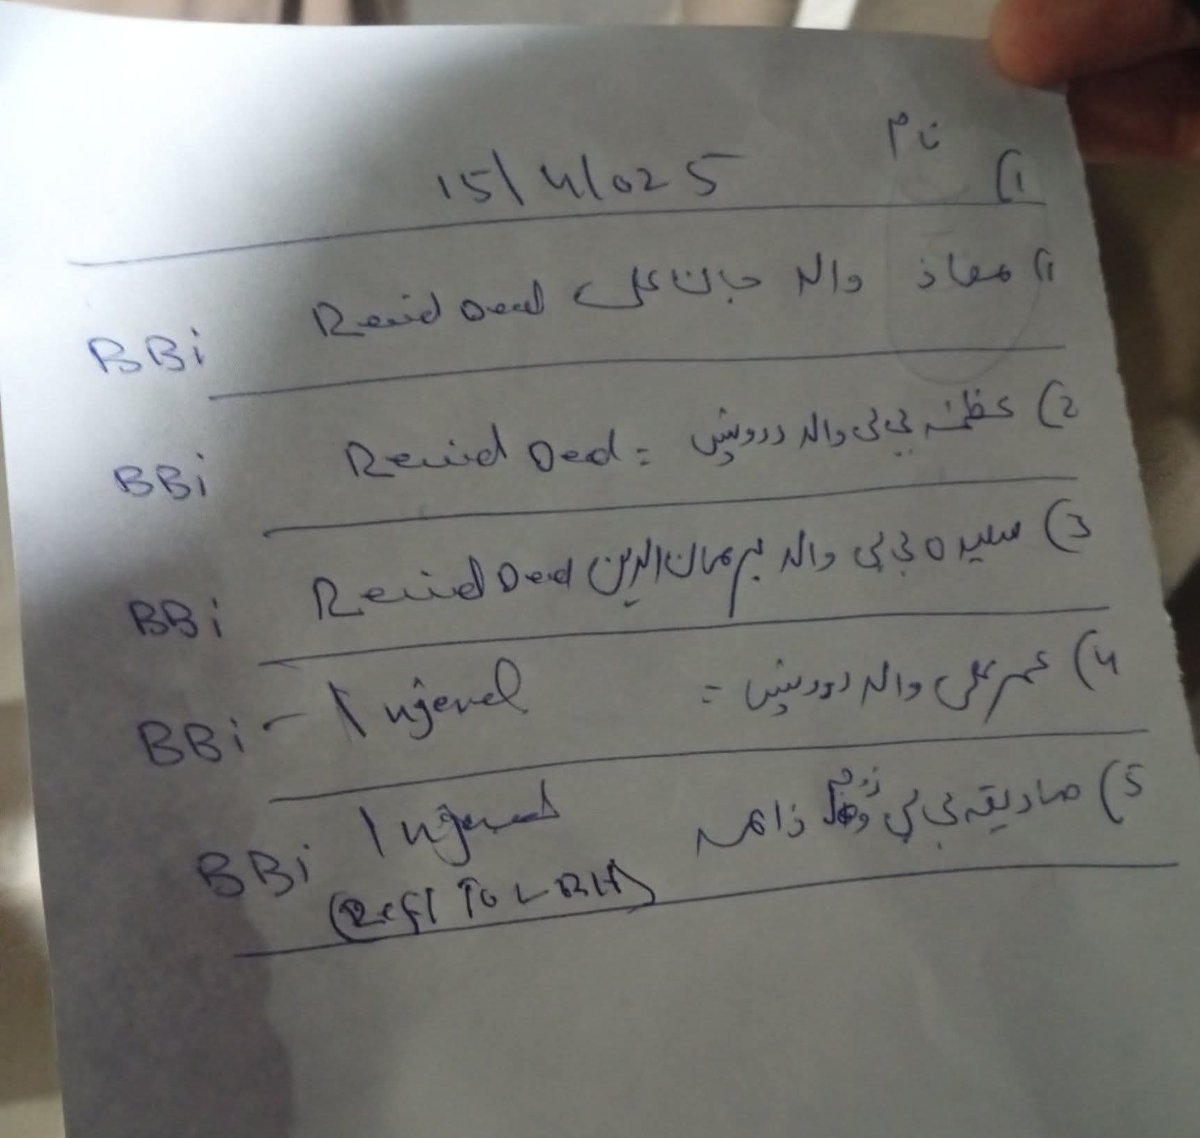 نام
15/4/025 (1
1) معاذ والد جان علی Reciid Ded BBi
2) عظمہ بی بی والد درویش = Reciid Ded BBi
3) سیدہ بی بی والد برهان الدین Reciid Ded BBi
4) عمر علی والد درویش = Injered - BBi
5) صادیقہ بی بی زوجہ Injered BBi
(Refl To LRH)